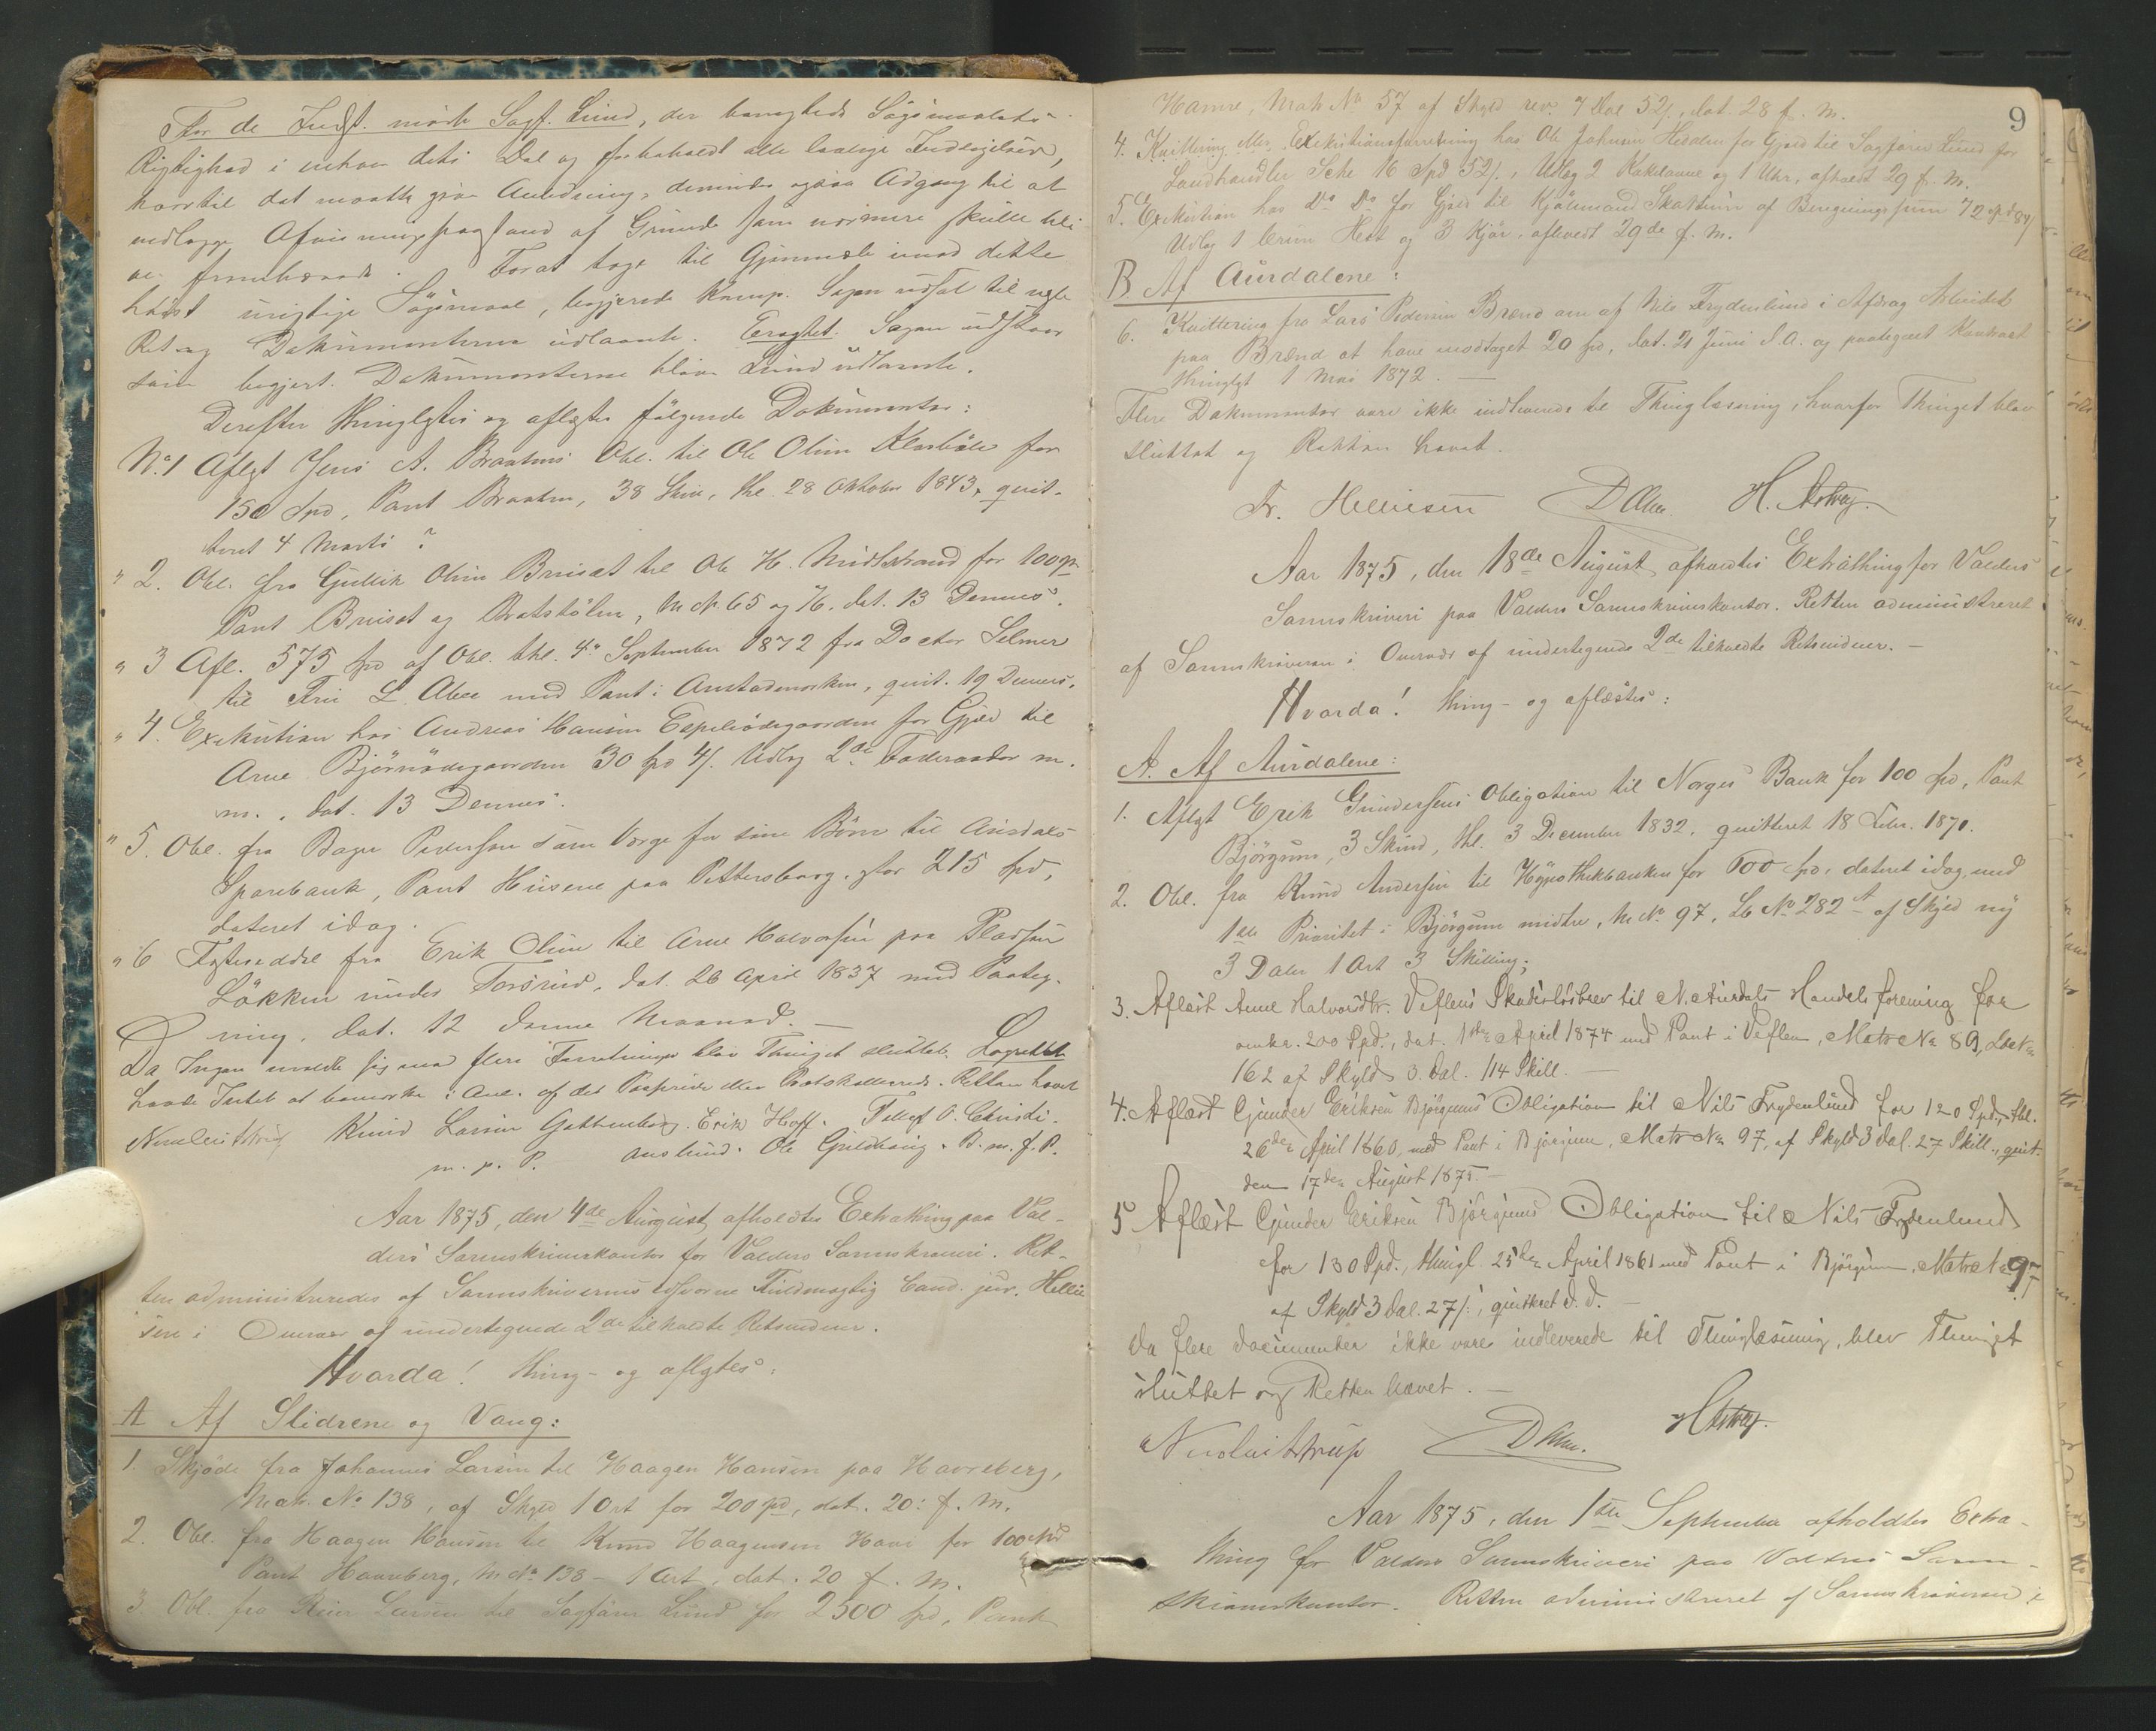 For de Indst. mödte Sagf. Lund, der benegtede Sögsmaalets
Rigtighed i enhver dets Del og forbeholdt alle lovlige Indsigelser,
hvortil det maatte give Anledning, derunder ogsaa Adgang til at
nedlægge Afvisningspaastand af Grunde som nærmere skulle bli
ve frembaarne. Forat tage til Gjenmæle imod dette
höist urigtige Sögsmaal, begjerede Komp. Sagen udsat til næste
Ret og Dokumenterne udlaante. Eragtet: Sagen udstaar
som begjert. Dokumenterne blev Lund udlaante.
Derefter thinglystes og aflystes fölgende Dokumenter:
No. 1 Aflyst Jens A. Braatens Obl. til Ole Olsen for
150 Spd, Pant Braaten, 38 Skin, thl. 28 Oktober 1843, qvit-
teret 4 Marts ?
" 2. Obl. fra Gullik Olsen Bruset til Ole H. Midtstrand for 100 Sp
Pant Bruset og, M No 65 og 76. dat. 13 Dennes.
" 3 Afl. 575 spd af Obl. thl. 4de September 1872 fra Doctor Selmer
til Fru L. Abel med Pant i, qvit. 19 Dennes.
" 4. Exekution hos Andreas Hansen Espeliödegaarden for Gjæld til
Arne Björnödegaarden 30 spd 4/. Udlæg 2de Foderaader m.
m., dat. 13 Dennes.
" 5. Obl. fra Pedersen som Værge for sine Börn til Aurdals
Sparebank, Pant Husene paa Pettersborg, stor 215 spd,
dateret idag.
" 6 Fæsteseddel fra Erik Olsen til Arne Halvorsen paa Pladsen
Lökken under, dat. 26 April 1837 med Paateg-
ning, dat. 12 denne Maaned. —
Da Ingen meldte sig med flere Forretninger blev Thinget sluttet. Lagrettet
havde Intet at bemærke i Anl. af det Passerede eller Protokollerede. Retten hævet
Knud Larsen Erik Hoff. O. Christi-
m. p. P. anslund. Ole. B. m. f. P.
Aar 1875, den 4de August, afholdtes Extrathing paa Val-
ders Sorenskriverkontor for Valders Sorenskriveri. Ret-
ten administreredes af Sorenskriverens edsvorne Fuldmægtig Cand. jur. Hellie
sen i Overvær af undertegnede 2de tilkaldte Retsvidner.
Hvorda! thing- og aflystes:
A Af Slidrene og Vang:
1. Skjöde fra Johannes Larsen til Haagen Hansen paa Havreberg,
Mat. No 138, af Skyld 1 Ort for 200 spd, dat. 20: f. M.
2. Obl. fra Haagen Hansen til Knud Haagensen for 100 spd
Pant Havreberg, M No 138 - 1 Ort, dat. 20 f. M.
3 Obl. fra Larsen til Sagförer Lund for 2500 spd, Pant
9
Hamre, Matr No 57 af Skyld rev. 7 Dal 52/., dat. 28 f. M.
4. Kvittering eller Exekutionsforretning hos Ole Johnsen for Gjæld til Sagförer Lund for
Landhandler 16 Spd 52/., Udlæg 2 Kakelovne og 1 Uhr, afholdt 29 f. M.
5. Exekution hos Do Do for Gjæld til af 72 spd 84/
Udlæg 1 Hest og 3 Kjör, afleveret 29de f. M.
B Af Aurdalene:
6. Kvittering fra Lars Pedersen Brænd om af Nils Frydenlund i Afdrag
paa Brænd at have modtaget 20 spd, dat. 21 Juni d. A. og paategnet Kontrakt
thinglyst 1 Mai 1872. —
Flere Dokumenter vare ikke indleverede til Thinglæsning, hvorfor Thinget blev
sluttet og Retten hævet.
Fr. Helliesen
Aar 1875, den 18de August, afholdtes Extrathing for Valders
Sorenskriveri paa Valders Sorenskriverkontor. Retten administreret
af Sorenskriveren i Overvær af undertegnede 2de tilkaldte Retsvidner. —
Hvorda! thing- og aflæstes:
A. Af Aurdalene:
1. Aflyst Erik Gundersens Obligation til Norges Bank for 100 spd, Pant
Björgum, 3 Skind, thl. 3 December 1832, quitteret 18 Febr. 1870.
2. Obl. fra Knud Andersen til Hypothekbanken for 600 spd. dateret idag, med
1ste Prioritet i Björgum midtre, M No. 97, L No 282 A af Skyld ny
3 Daler 1 Ort 3 Skilling;
3. Aflæst Anne Halvorsdtr. Veflens Skadeslösbrev til N. Aurdals Handelsforening for
omkr. 200 Spd., dat. 1ste April 1874 med Pant i Veflen, Matr No 89, Löb No
162 af Skyld 3. dal. 114 Skill. —
4. Aflæst Gunder Eriksen Björgums Obligation til Nils Frydenlund for 120 Spd., thl.
26de April 1860, med Pant i Björgum, Matr No 97, af Skyld 3 dal. 27 Skill., quit.
den 17de August 1875. —
5 Aflæst Gunder Eriksen Björgums Obligation til Nils Frydenlund
for 130 Spd., thingl 25de April 1861 med Pant i Björgum, Matr No 97
af Skyld 3 dal. 27/., quitteret d. d. —
Da flere documenter ikke vare indleverede til Thinglæsning, blev Thinget
sluttet og Retten hævet. —
Aar 1875, den 1ste September afholdtes Extra-
thing for Valders Sorenskriveri paa Valders Soren-
skriverkontor. Retten administreret af Sorenskriveren i